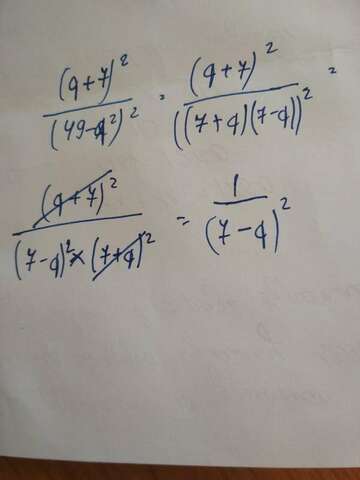 (q+7)² / (49-q²)² = (q+7)² / ((7+q)(7-q))² =
(q+7)² / (7-q)² × (7+q)² = 1 / (7-q)²